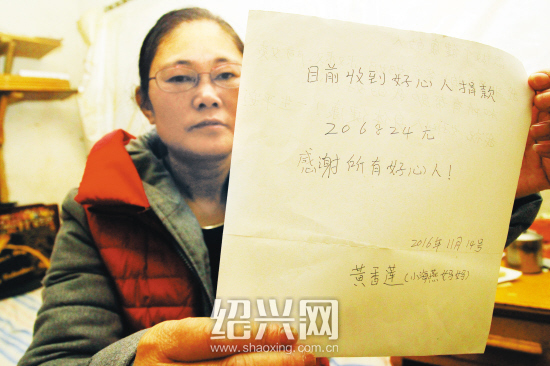 目前收到好心人捐款
206824元
感谢所有好心人!
2016年11月14号
黄香莲(小海燕妈妈)
绍兴网
www.shaoxing.com.cn